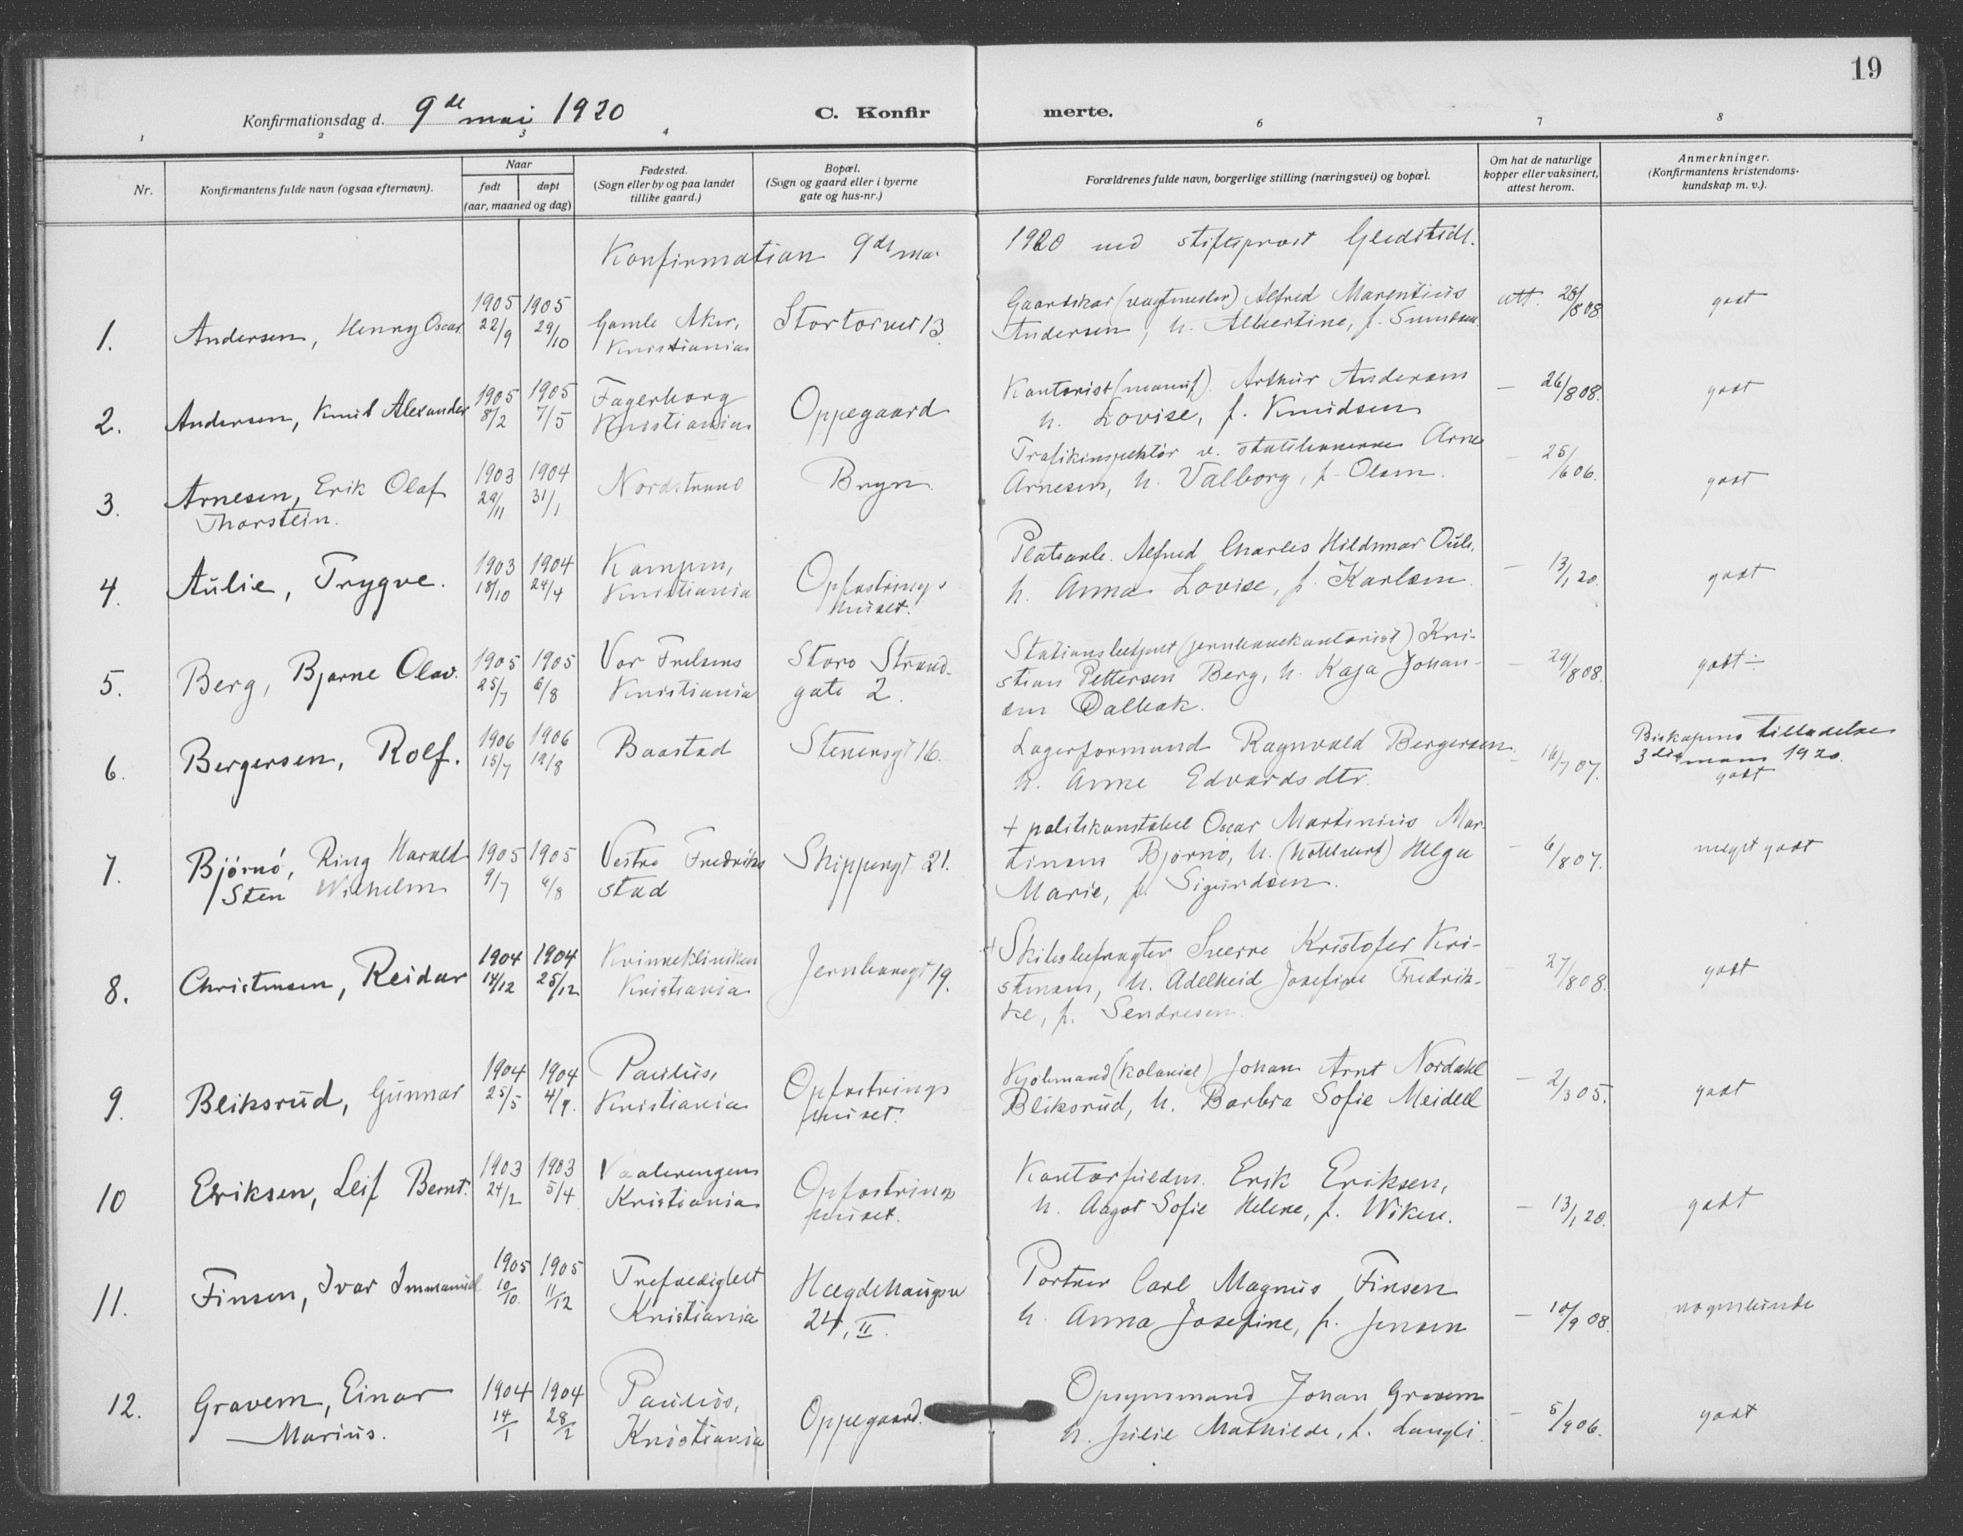 19
Konfirmationsdag d. 9de mai 1920 C. Konfirmerte.
1 2 3 4 6 7 8
Nr. Konfirmantens fulde navn (ogsaa efternavn). Naar født døpt (aar, maaned og dag) Fødested. (Sogn eller by og paa landet tillike gaard.) Bopæl. (Sogn og gaard eller i byerne gate og hus-nr.) Forældrenes fulde navn, borgerlige stilling (næringsvei) og bopæl. Om hat de naturlige kopper eller vaksinert, attest herom. Anmerkninger. (Konfirmantens kristendoms-kundskap m. v.).
Konfirmation 9de mai 1920 ved stiftsprost Gleditsch.
1. Andersen, Henry Oscar 1905 22/9 1905 29/10 Gamle Aker, Kristiania Stortorvet 13 Gaardskar (vagtmester) Alfred Marentius
Andersen, h. Albertine, f. att. 28/8 08. godt
2. Andersen, Knut Alexander 1905 8/2 1905 7/5 Fagerborg Kristiania Oppegaard Kontorist (manuf). Arthur Andersen
h. Lovise, f. Knudsen — 26/8 08. godt
3. Arnesen, Erik Olaf 1903 29/11 1904 31/1 Nordstrand Bryn Trafikinspektør v. statsbanerne Arne
Thorstein. Arnesen, h. Valborg, f. Olsen. — 25/6 06. godt
4. Aulie, Trygve. 1903 18/10 1904 24/4 Kampen, Kristiania Opfostringshuset. Alfred Charles Hildemar
h. Anna Lovise, f. Karlsen. — 13/1 20. godt
5. Berg, Bjarne Olav. 1905 25/7 1905 6/8 Vor Frelsers Kristiania Store Strandgate 2. Stationsbetjent (jernbanekontorist) Kri-
stian Pettersen Berg, h. Kaja Johan-
sen Dalbak. — 29/8 08. godt ÷
6. Bergersen, Rolf. 1906 15/7 1906 19/8 Baastad Stenersgt 16. Lagerformand Ragnvald Bergersen
h. Anne Edvardsdtr. — 16/7 07. Biskopens tilladelse
3die mars 1920.
godt
7. Bjørnø, Ring Harald 1905 9/7 1905 6/8 Vestre Fredrikstad Skippergt 21. + politikonstabel Oscar Martinius Mar-
Sten Wilhelm tinsen Bjørnø, h. (hotelvært) Helga
Marie, f. Sigurdsen. — 6/8 07. meget godt
8. Christensen, Reidar 1904 14/12 1904 25/12 Kvindeklinikken Kristiania Jernbanegt 19. + Skibsbefragter Sverre Kristofer Kri-
stensen, h. Adelheid Josefine Fredrik-
ke, f. Sendresen. — 27/8 08. godt
9. Bliksrud, Gunnar 1904 25/5 1904 4/9. Paulus, Kristiania Opfostringshuset. Kjøbmand (kolonial) Johan Arnt Nordahl
Bliksrud, h. Barbra Sofie Meidell — 2/3 05. godt
10 Eriksen, Leif Bernt. 1903 24/2 1903 5/4 Vaalerengens Kristiania Opfostringshuset. Erik Eriksen,
h. Aagot Sofie Helene, f. Wiken. — 13/1 20. godt
11. Finsen, Ivar Immanuel 1905 10/10. 1905 11/12 Trefoldighet Kristiania Hegdehaugsv 24, II. Portner Carl Magnus Finsen
h. Anna Josefine, f. Jensen — 10/9 08. nogenlunde
12. Gravem, Einar 1904 14/1 1904 28/2 Paulus, Kristiania Oppegaard. Opsynsmand Johan Gravem
Marius. h. Julie Mathilde, f. Langli. — 5/9 06. godt